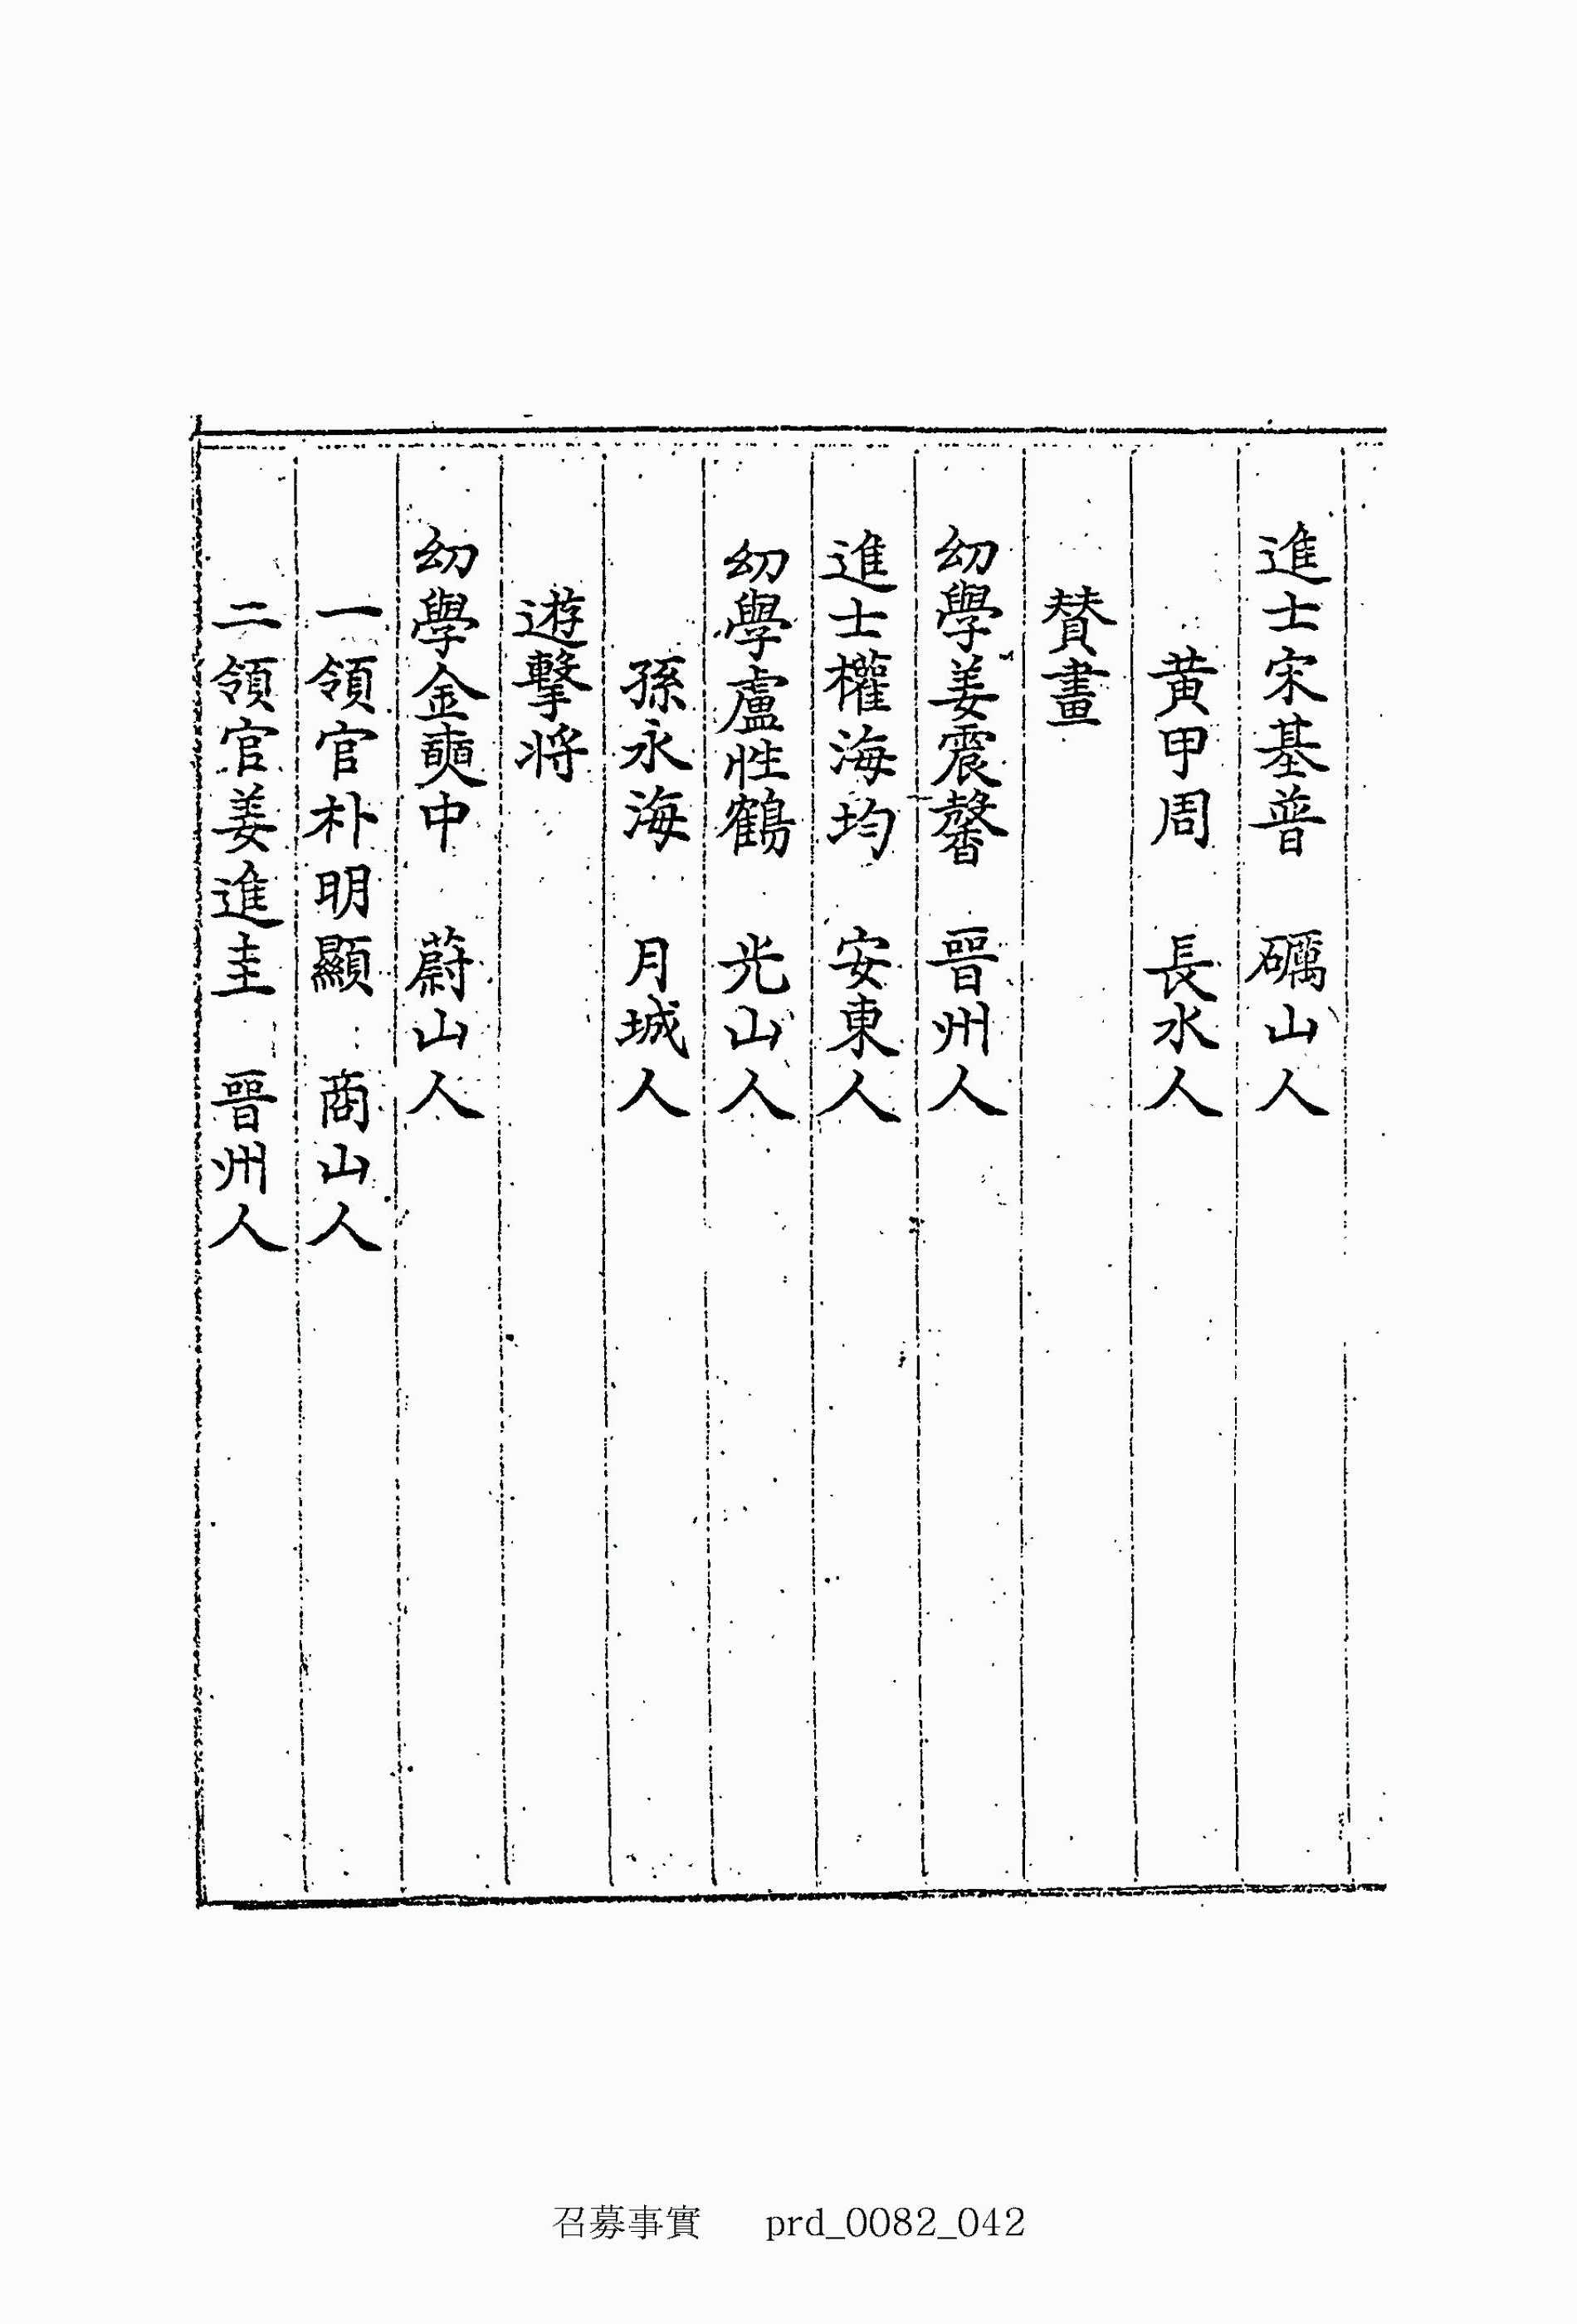 進士宋基普 礪山人
黃甲周 長水人
賛畫
幼學姜震馨 晉州人
進士權海均 安東人
幼學盧性鶴 光山人
孫永海 月城人
遊擊將
幼學金奭中 蔚山人
一領官朴明顯 商山人
二領官姜進圭 晉州人
召募事實 prd_0082_042